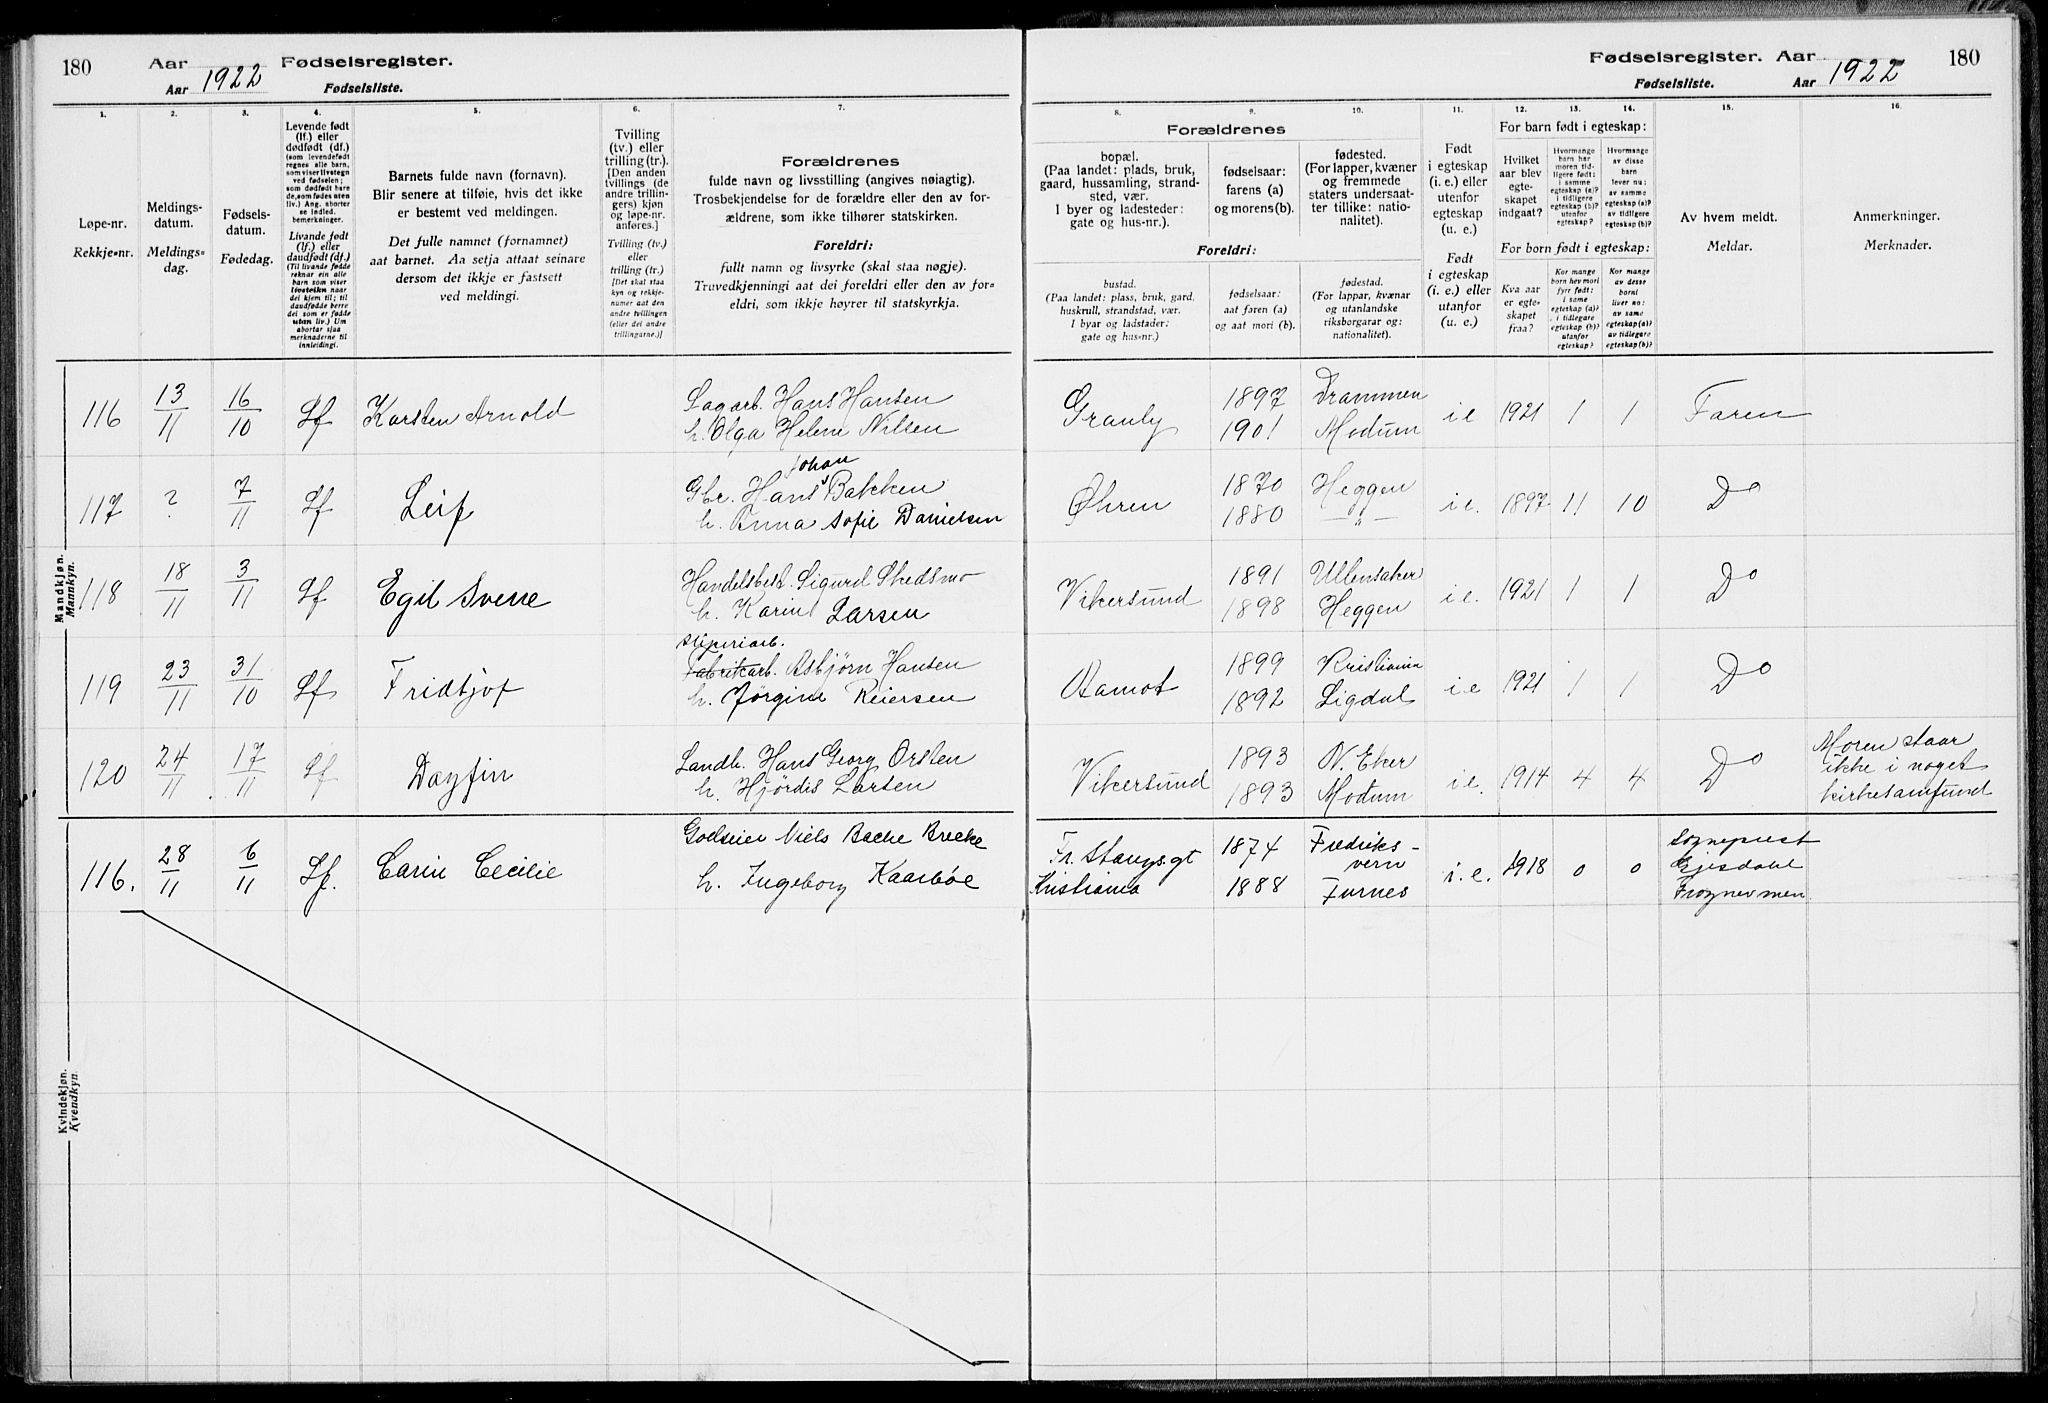 180 Aar 1922 Fødselsregister.
Aar Fødselsliste.
1. 2. 3. 4. 5. 6. 7.
Løpe-nr.
Rekkje-nr.
Meldings-
datum.
Meldings-
dag.
Fødsels-
datum.
Fødedag.
Levende født
(lf.) eller
dødfødt (df.)
(som levendefødt
regnes alle barn,
som viser livstegn
ved fødselen;
som dødfødt bare
de, som fødes uten
liv.) Ang. aborter
se indled.
bemerkninger.
Livande født
(lf.) eller
daudfødt (df.)
(Til livande fødde
reknar ein alle
born som viser
livsteikn naar
dei kjem til; til
daudfødde berre
dei som er fødde
utan liv.) Um
abortar sjaa
merknaderne til
innleidingi.
Barnets fulde navn (fornavn).
Blir senere at tilføie, hvis det ikke
er bestemt ved meldingen.
Det fulle namnet (fornamnet)
aat barnet. Aa setja attaat seinare
dersom det ikkje er fastsett
ved meldingi.
Tvilling
(tv.) eller
trilling (tr.).
[Den anden
tvillings (de
andre trillin-
gers) kjøn
og løpe-nr.
anføres.]
Tvilling (tv.)
eller
trilling (tr.)
[Det skal staa
kyn og rekkje-
numer aat den
andre tvillingen
(eller dei andre
trillingarne.)]
Forældrenes
fulde navn og livsstilling (angives nøiagtig).
Trosbekjendelse for de forældre eller den av for-
ældrene, som ikke tilhører statskirken.
Foreldri:
fullt namn og livsyrke (skal staa nøgje).
Truvedkjenningi aat dei foreldri eller den av for-
eldri, som ikkje høyrer til statskyrkja.
Mandkjøn.
Mannkyn.
116 13/11 16/10 Lf Karsten Arnold Sagarb. Hans Hansen
h. Olga Helene Nilsen
117 ? 7/11 Lf Leif Gbr. Hans Johan Bakken
h. Anna Sofie Danielsen
118 18/11 3/11 Lf Egil Sverre Handelsbest. Sigurd Skedsmo
h. Karine Larsen
119 23/11 31/10 Lf Fridtjof Sliperiarb.
Fabrikarb. Asbjørn Hansen
h. Jørgine Reiersen
120 24/11 17/11 Lf Dagfin Landh. Hans Georg Orsten
h. Hjördis Larsen
Kvindekjøn.
Kvendkyn.
116. 28/11 6/11 Lf. Carin Cecilie Godseier Niels Bache Brecke
h. Ingeborg Kaarbøe
Fødselsregister. Aar 1922 180
Fødselsliste. Aar
8. 9. 10. 11. 12. 13. 14. 15. 16.
Forældrenes
bopæl.
(Paa landet: plads, bruk,
gaard, hussamling, strand-
sted, vær.
I byer og ladesteder:
gate og hus-nr.).
fødselsaar:
farens (a)
og morens (b).
fødested.
(For lapper, kvæner
og fremmede
staters undersaat-
ter tillike: natio-
nalitet).
Foreldri:
bustad.
(Paa landet: plass, bruk, gard,
huskrull, strandstad, vær.
I byar og ladstader:
gate og hus-nr.)
fødselsaar:
aat faren (a)
og aat mori (b).
fødestad.
(For lappar, kvænar
og utanlandske
riksborgarar og:
nationalitet).
Født
i egteskap
(i. e.) eller
utenfor
egteskap
(u. e.)
Født
i egteskap
(i. e.) eller
utanfor
(u. e.)
For barn født i egteskap:
Hvilket
aar blev
egte-
skapet
indgaat?
Hvormange
barn har
moren tid-
ligere født:
i samme
egteskap (a)?
utenfor
egteskap (b)?
Hvormange
av disse
barn
lever nu:
av samme
egteskap (a)?
av tidligere
egteskap (b)?
For born født i egteskap:
Kva aar
er egte-
skapet
fraa?
Kor mange
born hev mori
fyrr født:
i same
egteskap (a)?
i tidlegare
egteskap (b)?
utanfor
egteskap?
Kor mange
av desse
borni
liver no:
av same
egteskap (a)?
av tidlegare
egteskap (b)?
Av hvem meldt.
Meldar.
Anmerkninger.
Merknader.
Granly 1897 Drammen i e 1921 1 1 Faren
1901 Modum
Øhren 1870 Heggen i e. 1897 11 10 Do
1880 —„—
Vikersund 1891 Ullensaker i e. 1921 1 1 Do
1898 Heggen
Aamot 1899 Kristiania i e 1921 1 1 Do
1892 Sigdal
Vikersund 1893 N. Eker i e. 1914 4 4 Do
1893 Modum
Moren staar
ikke i noget
kirkesamfund
Fr. Stangs.gt 1874 Fredriks-
vern
Kristiania 1888 Furnes
i. e. 1918 0 0 Sogneprest
Gjesdahl
Frognermen.